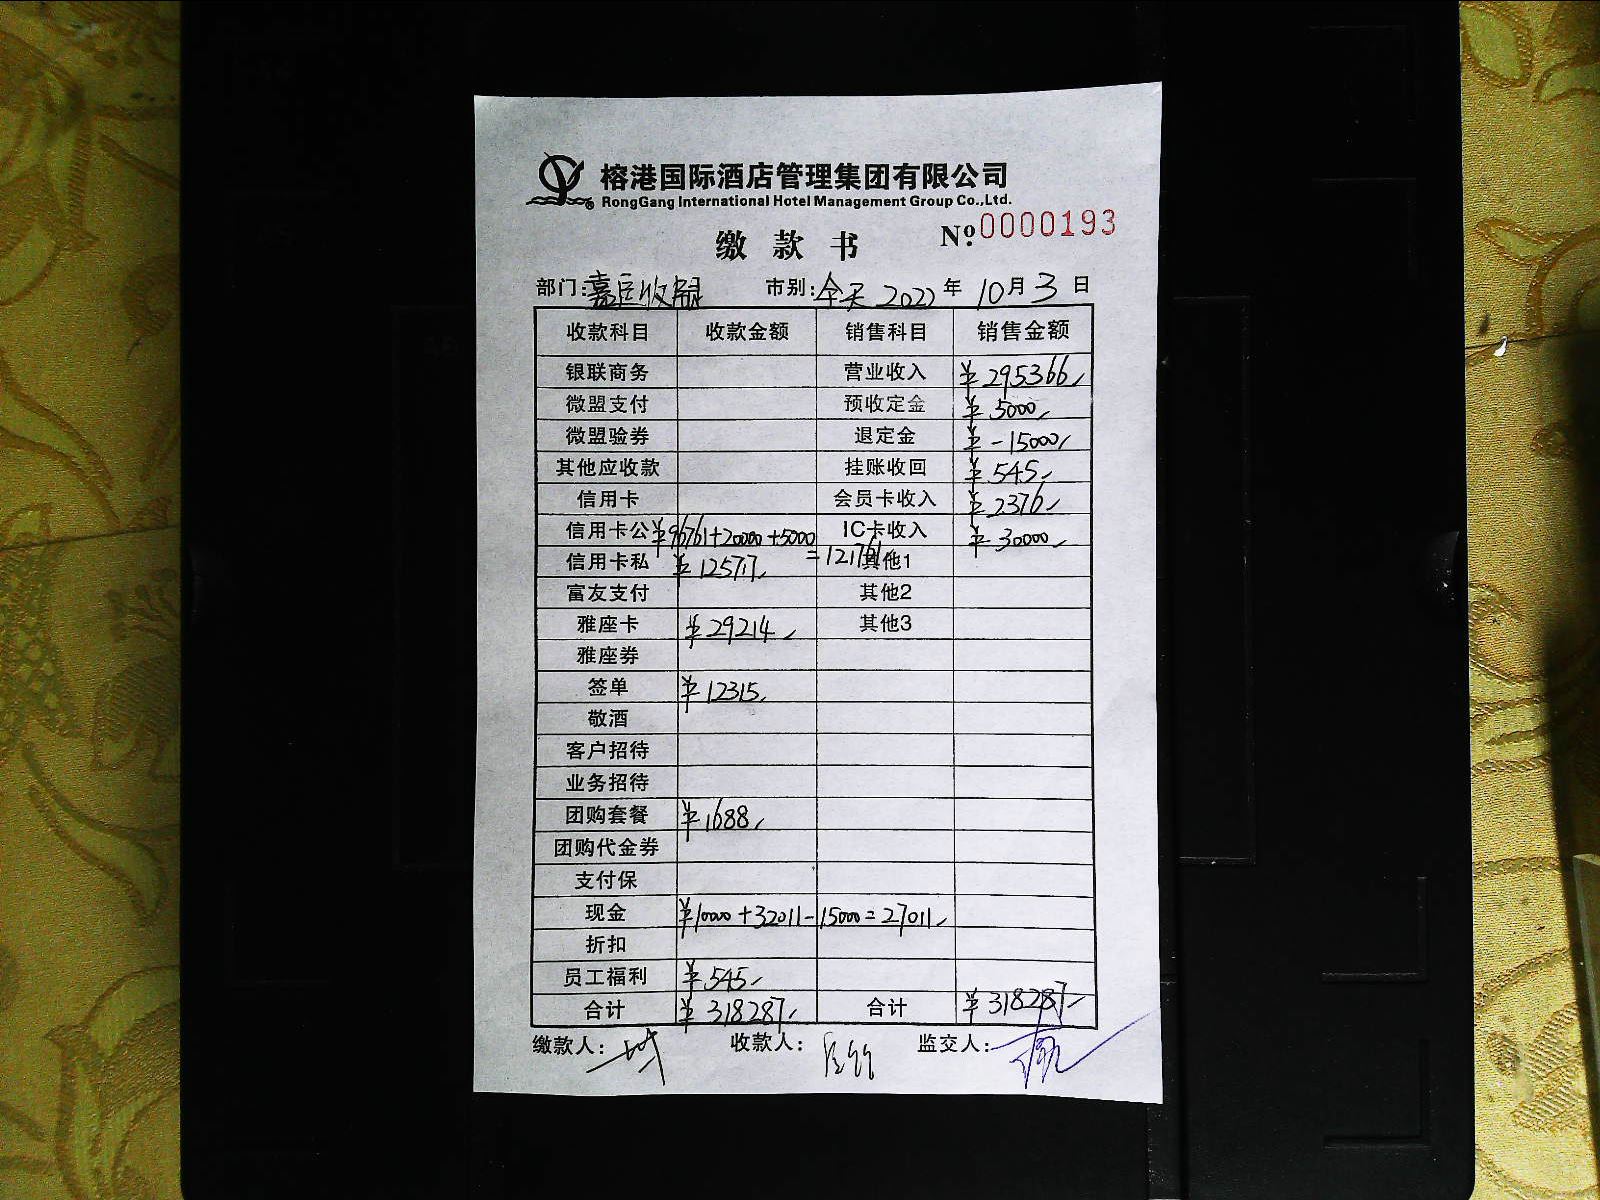 榕港国际酒店管理集团有限公司
RongGang International Hotel Management Group Co.,Ltd.
缴款书 №0000193
部门: 收银 市别:全天 2022年10月3日
收款科目 收款金额 销售科目 销售金额
银联商务 营业收入 ¥295366
微盟支付 预收定金 ¥5000
微盟验券 退定金 ¥-15000
其他应收款 挂账收回 ¥545
信用卡 会员卡收入 ¥2376
信用卡公 ¥96761+20000+5000=121761 IC卡收入 ¥30000
信用卡私 ¥ 其他1
富友支付 其他2
雅座卡 ¥29214 其他3
雅座券
签单 ¥12315
敬酒
客户招待
业务招待
团购套餐 ¥1688
团购代金券
支付保
现金 ¥10000+32011-15000=27011
折扣
员工福利 ¥545
合计 ¥318287 合计 ¥318287
缴款人: 收款人: 监交人: